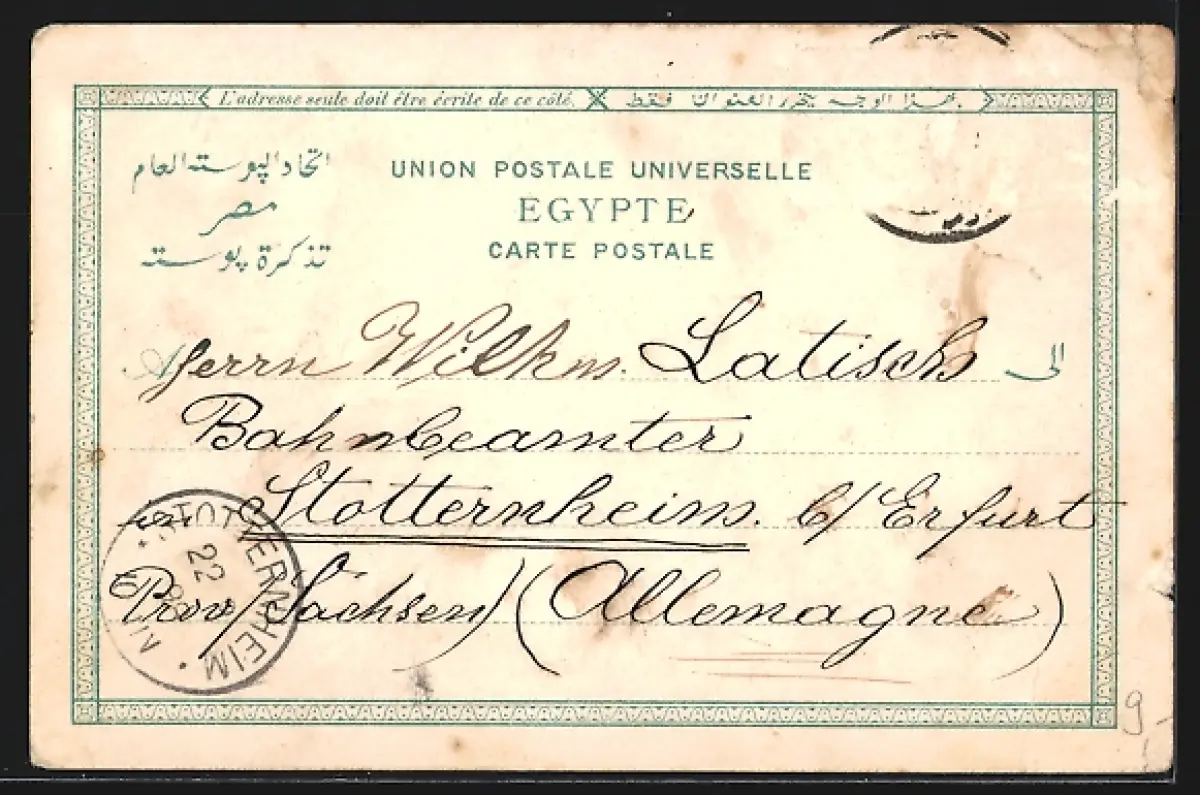 L'adresse seule doit être écrite de ce côté. هذا الوجه يحرر العنوان فقط
اتحاد البوسته العام
مصر
تذكرة بوسته
UNION POSTALE UNIVERSELLE
EGYPTE
CARTE POSTALE
Herrn Wilhm. Latisch الى
Bahnbeamter
in Stotternheim. b/ Erfurt
Prov/ Sachsen) (Allemagne)
STOTTERNHEIM
22
9